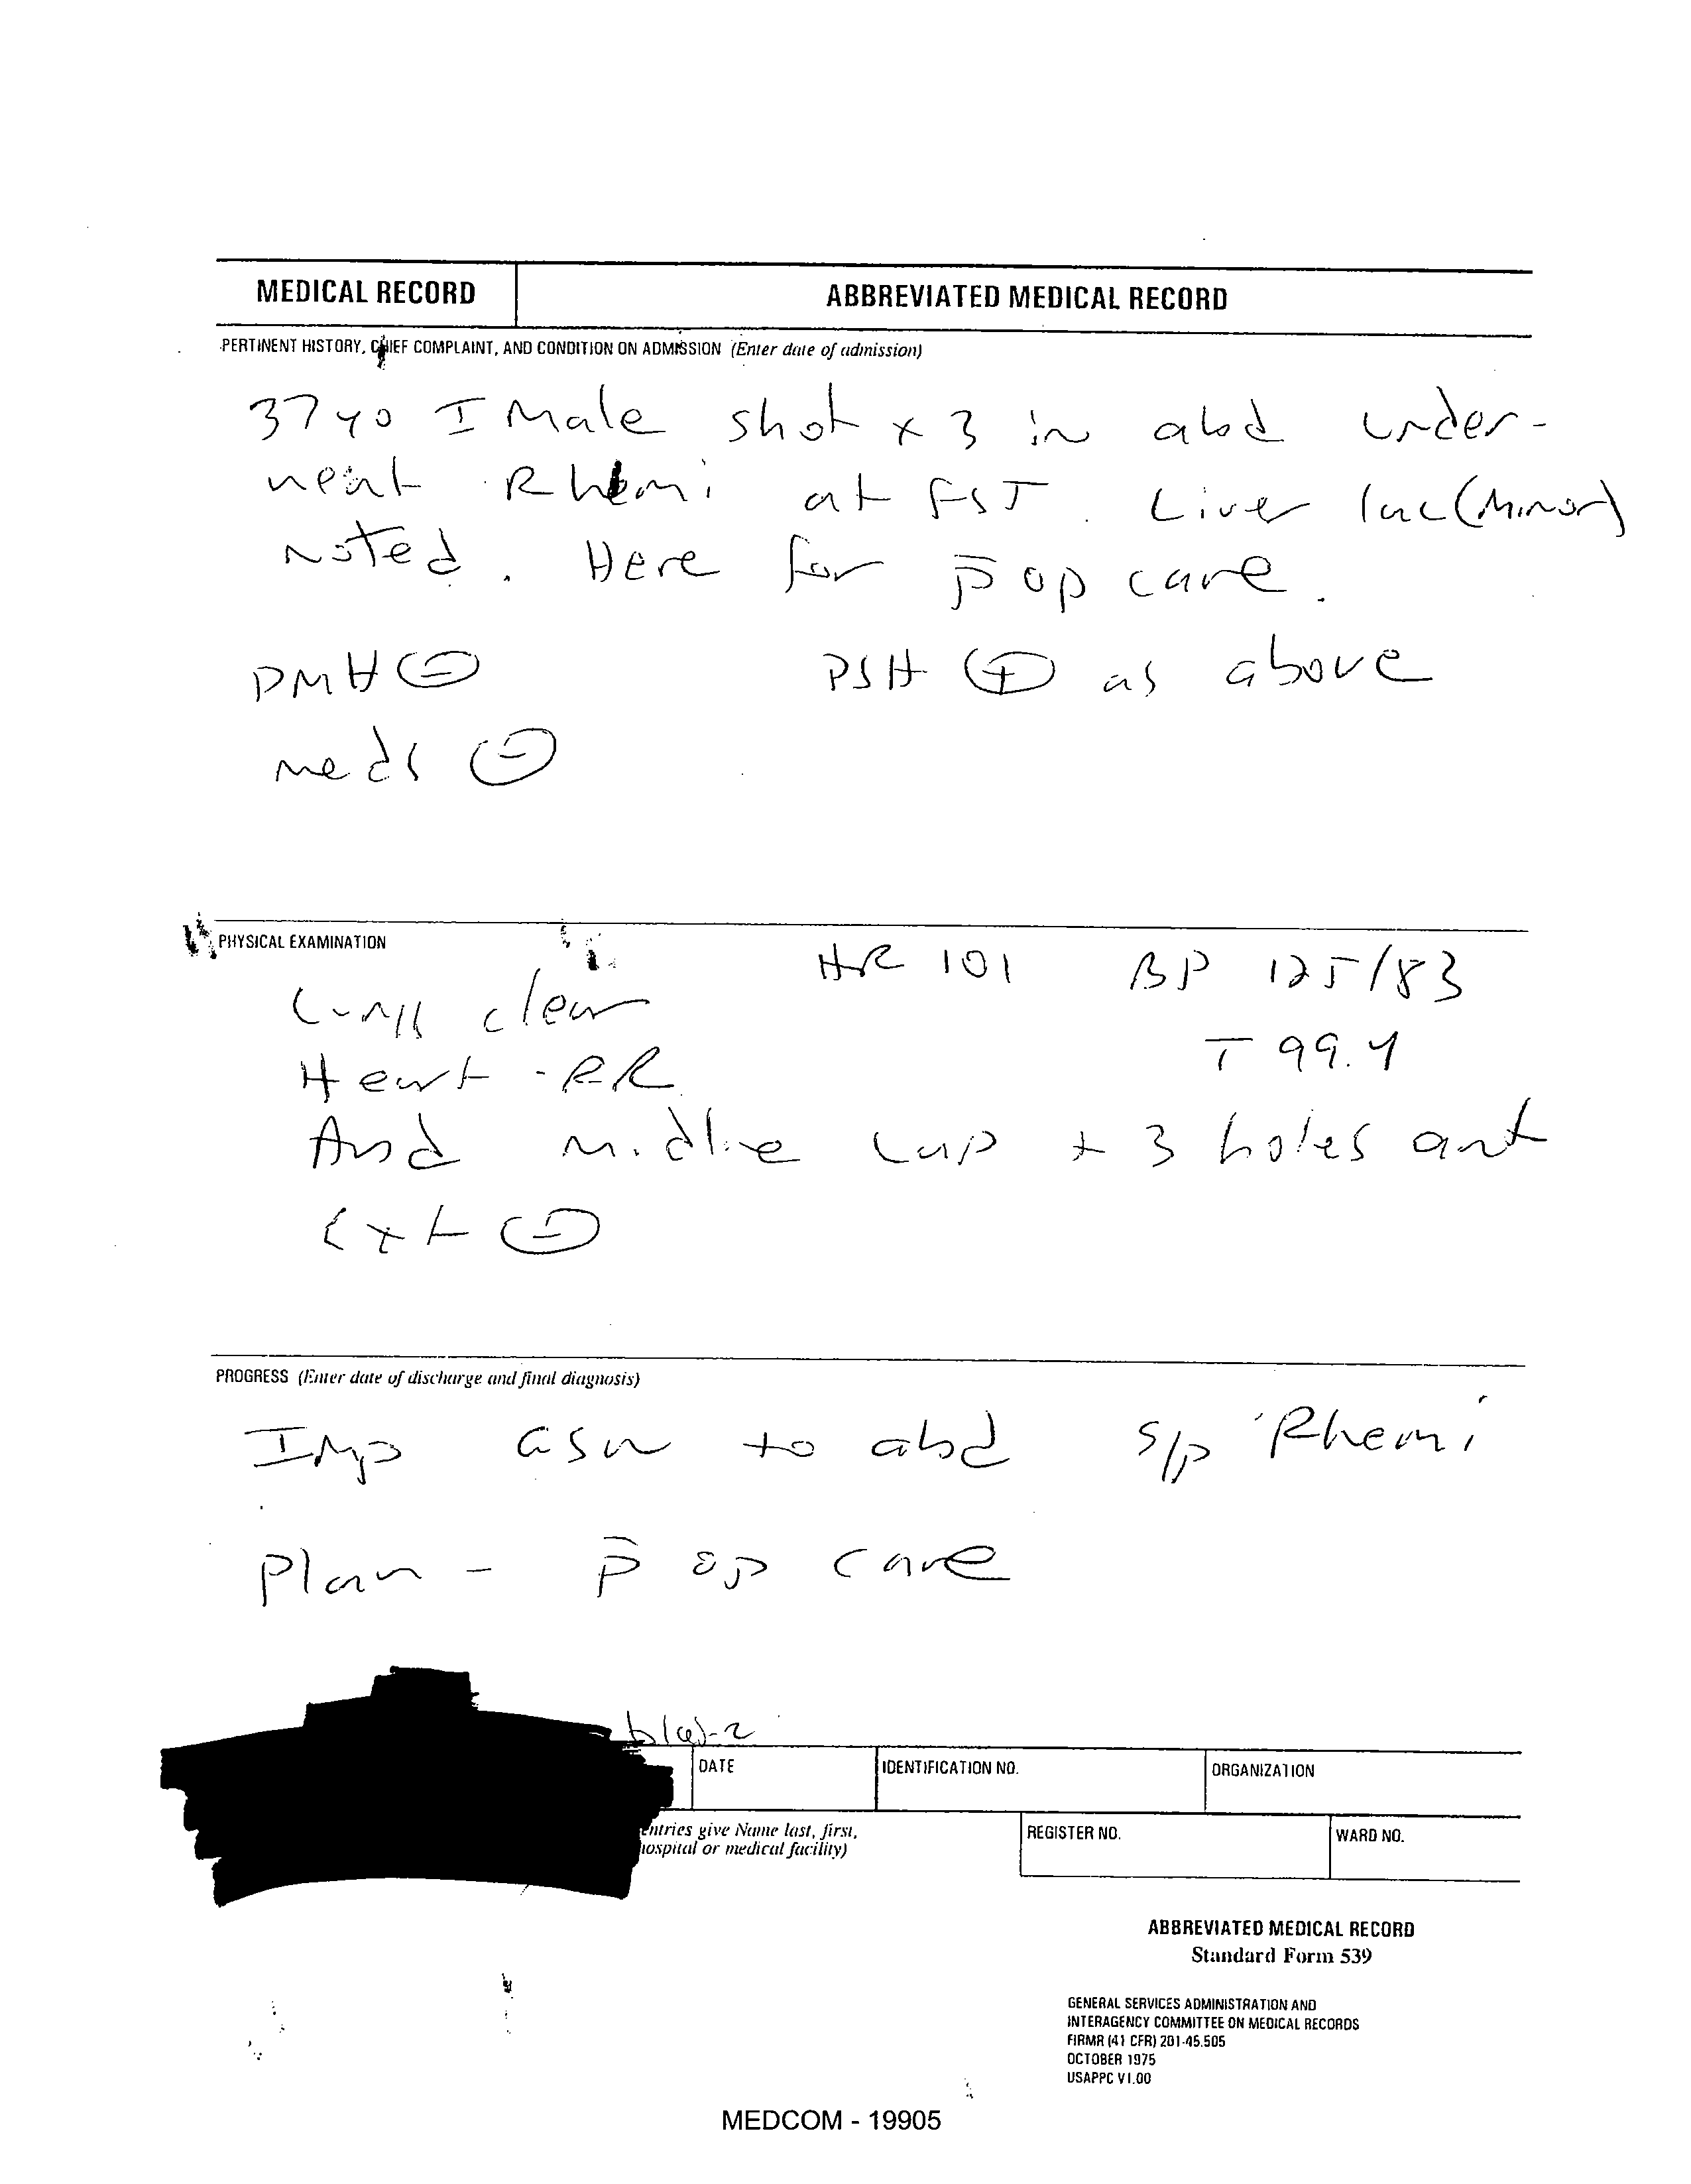 MEDICAL RECORD
ABBREVIATED MEDICAL RECORD
PERTINENT HISTORY, CHIEF COMPLAINT, AND CONDITION ON ADMISSION (Enter date of admission)
37 yo I Male shot x 3 in abd under-
neat Rhemi at FST. Liver lac (Minor)
Noted. Here for p̄ op care.
PMH ⊖ PSH ⊕ as above
meds ⊖
PHYSICAL EXAMINATION
HR 101 BP 125/83
Lungs clear
T 99.4
Heart - RR
Abd midline lap + 3 holes ant
Ext ⊖
PROGRESS (Enter date of discharge and final diagnosis)
Imp GSW to abd s/p Rhemi
Plan - p̄ op care
b(6)-2
DATE
IDENTIFICATION NO.
ORGANIZATION
entries give Name last, first,
hospital or medical facility)
REGISTER NO.
WARD NO.
ABBREVIATED MEDICAL RECORD
Standard Form 539
GENERAL SERVICES ADMINISTRATION AND
INTERAGENCY COMMITTEE ON MEDICAL RECORDS
FIRMR (41 CFR) 201-45.505
OCTOBER 1975
USAPPC V1.00
MEDCOM - 19905